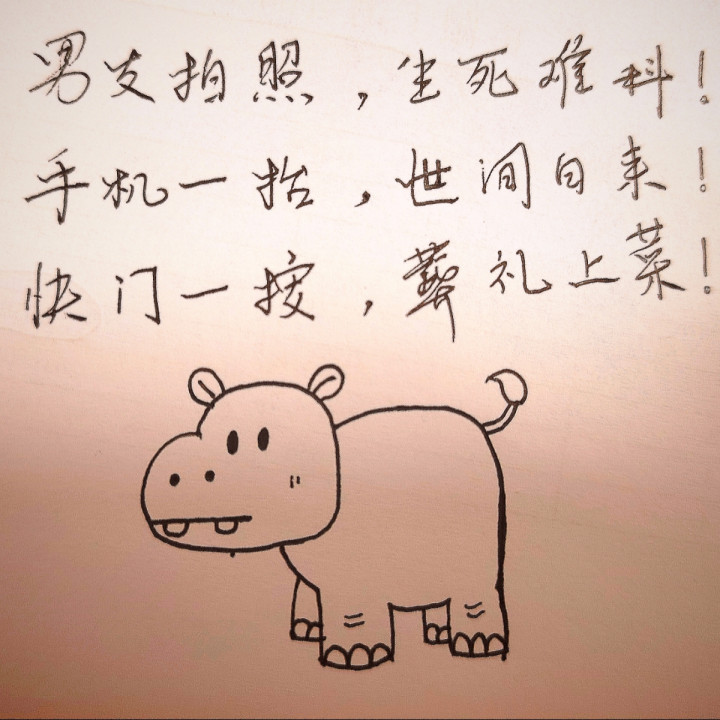 男友拍照，生死难料！
手机一抬，世间白来！
快门一按，葬礼上菜！